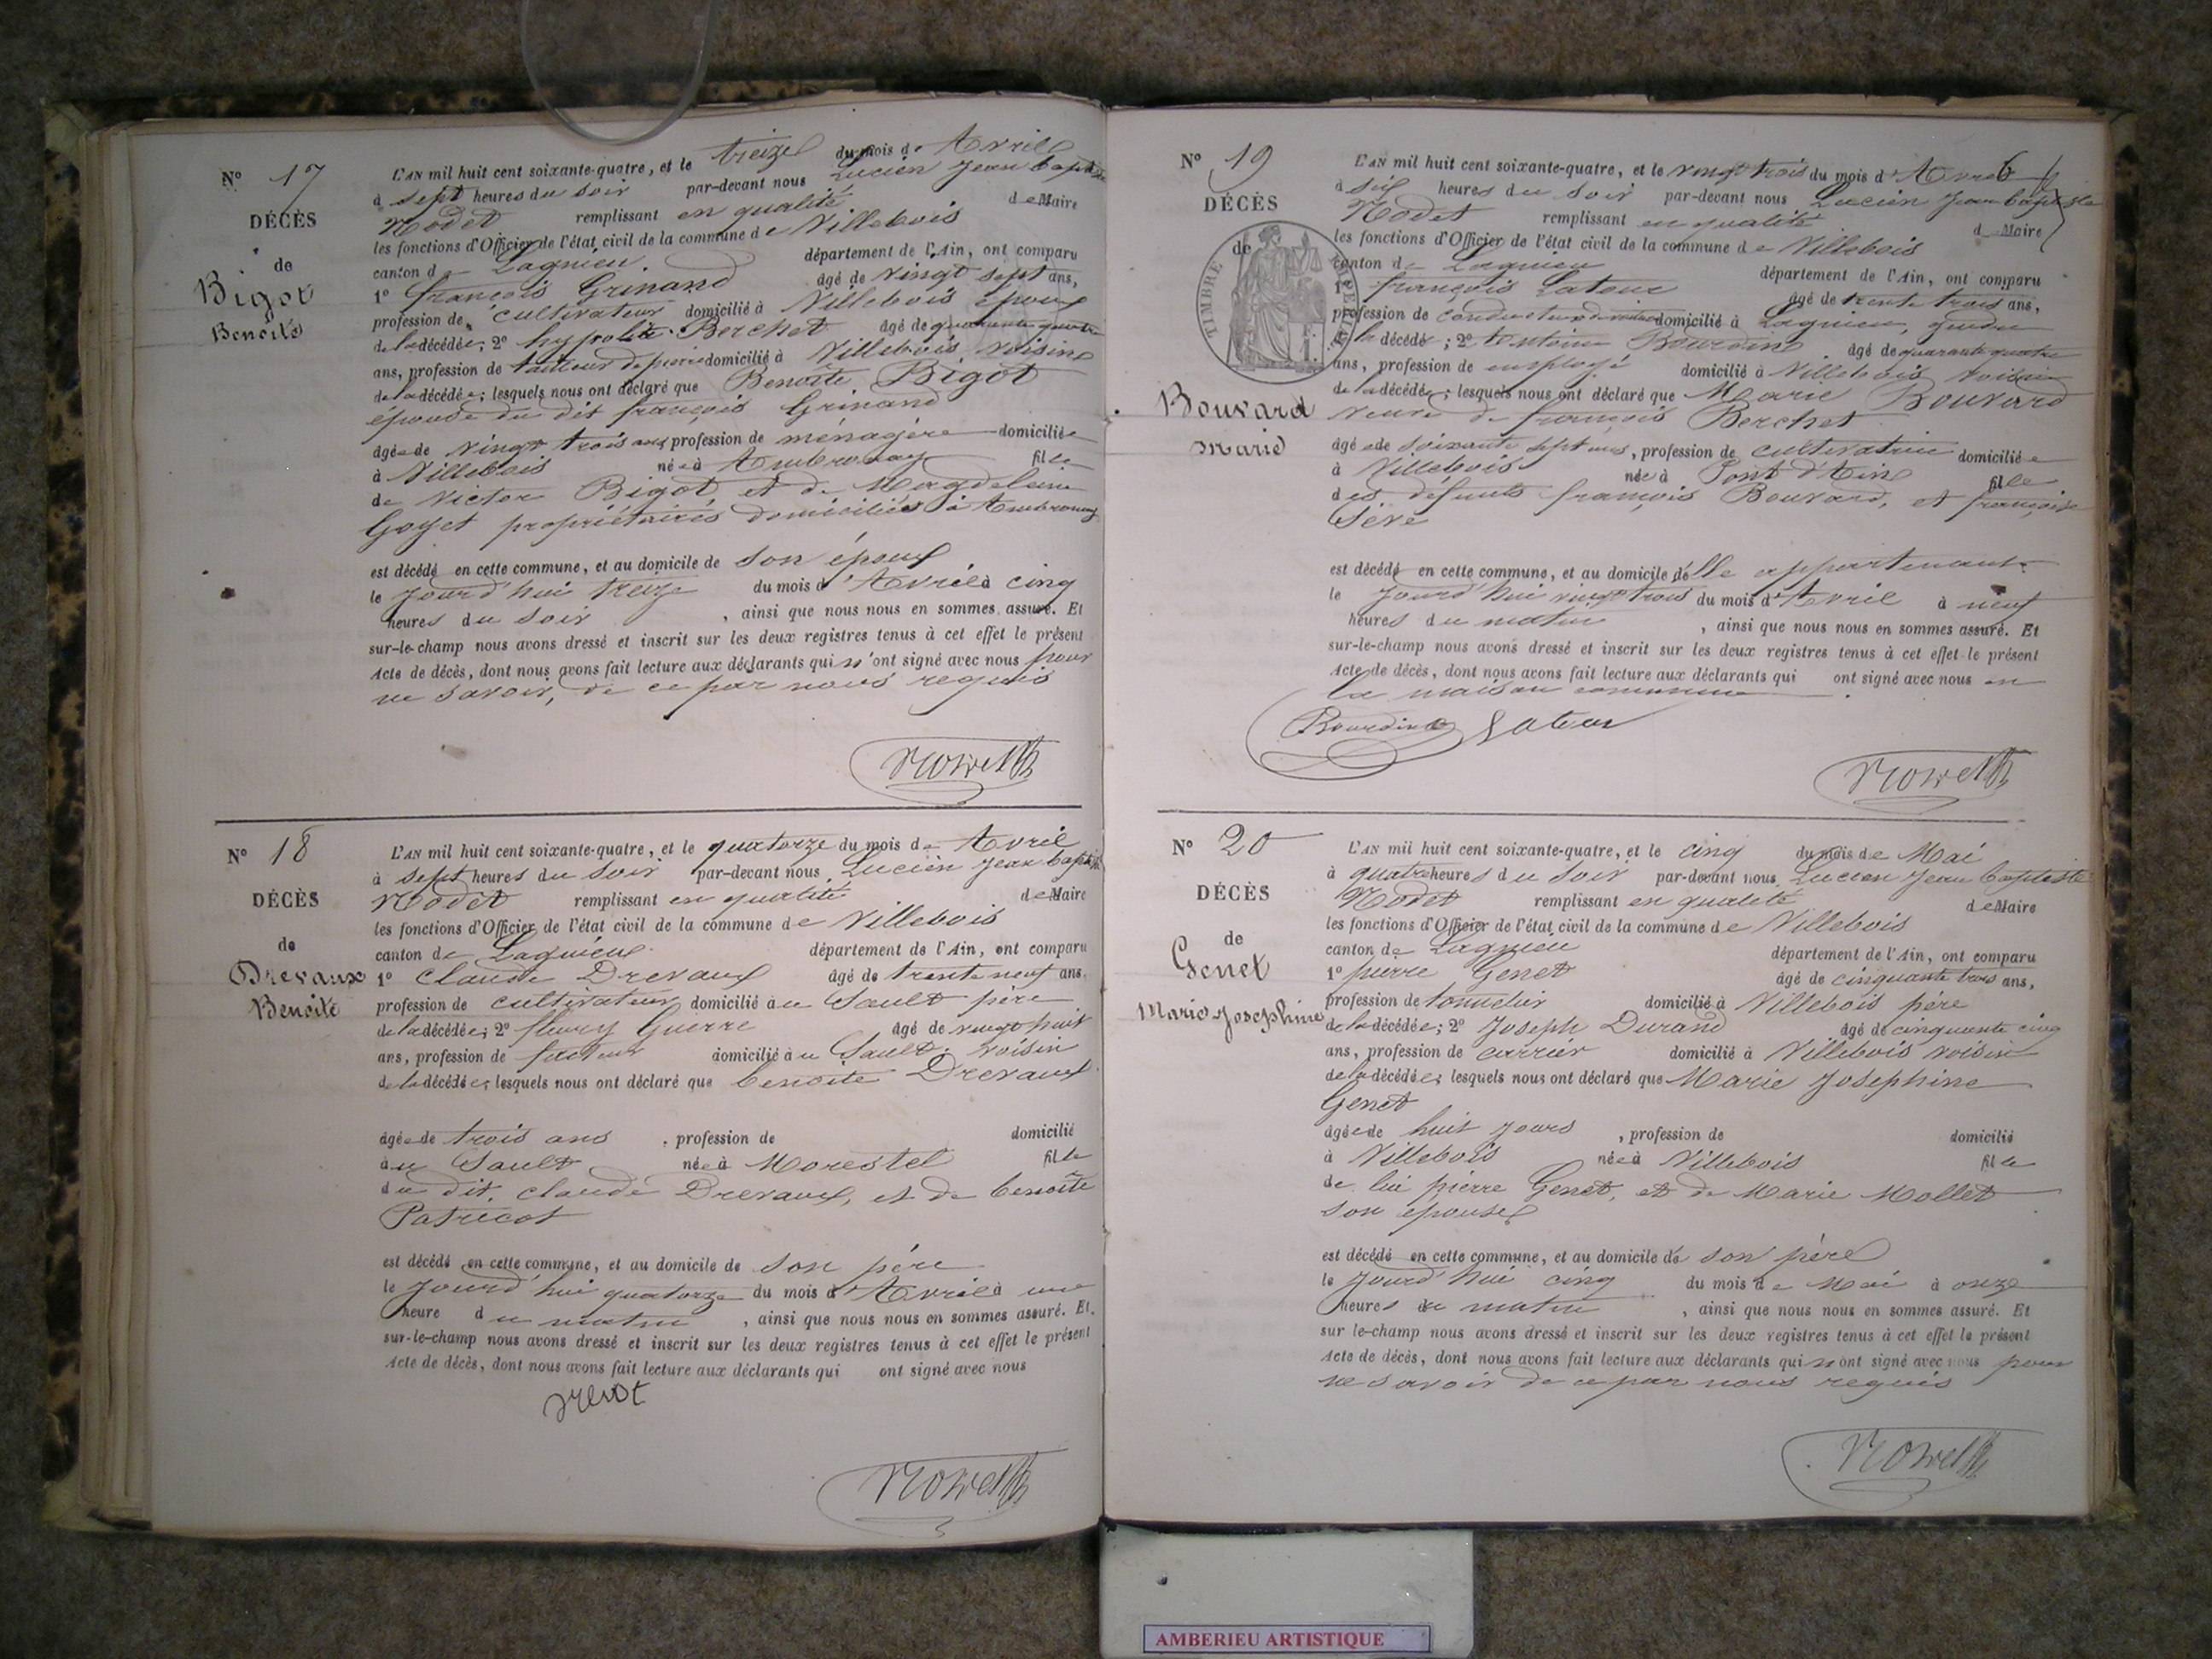 N° 17
DÉCÈS
de
Bigot
Benoite
L'AN mil huit cent soixante-quatre, et le treize du mois d'Avril
à sept heures du soir par-devant nous Lucien Jean baptiste
Nodet remplissant en qualité de Maire
les fonctions d'Officier de l'état civil de la commune de Villebois
canton de Lagnieu département de l'Ain, ont comparu
1° françois Grinand âgé de vingt sept ans,
profession de cultivateur domicilié à Villebois époux
de la décédée; 2° hypolite Berchet âgé de quarante quatre
ans, profession de tailleur de pierre domicilié à Villebois, voisin
de la décédée; lesquels nous ont déclaré que Benoîte Bigot
épouse du dit françois Grinand
âgée de vingt trois ans profession de ménagère domiciliée
à Villebois née à Ambronay fille
de Victor Bigot, et de Magdeleine
Goyet propriétaires domiciliés à Ambronay
est décédé en cette commune, et au domicile de son époux
le jourd'hui treize du mois d'Avril à cinq
heures du soir, ainsi que nous nous en sommes assuré. Et
sur-le-champ nous avons dressé et inscrit sur les deux registres tenus à cet effet le présent
Acte de décès, dont nous avons fait lecture aux déclarants qui n'ont signé avec nous pour
ne savoir, de ce par nous requis
N° 18
DÉCÈS
de
Drevaux
Benoite
L'AN mil huit cent soixante-quatre, et le quatorze du mois d'Avril
à sept heures du soir par-devant nous Lucien Jean baptiste
Nodet remplissant en qualité de Maire
les fonctions d'Officier de l'état civil de la commune de Villebois
canton de Lagnieu département de l'Ain, ont comparu
1° Claude Drevaux âgé de trente neuf ans
profession de cultivateur domicilié au Sault père
de la décédée; 2° fleury Guerre âgé de vingt huit
ans, profession de facteur domicilié au Sault voisin
de la décédée; lesquels nous ont déclaré que benoite Drevaux
âgée de trois ans, profession de domicilié
au Sault née à Morestel fille
du dit Claude Drevaux, et de benoîte
Patricot
est décédé en cette commune, et au domicile de son père
le jourd'hui quatorze du mois d'Avril à une
heure du matin, ainsi que nous nous en sommes assuré. Et
sur-le-champ nous avons dressé et inscrit sur les deux registres tenus à cet effet le présent
Acte de décès, dont nous avons fait lecture aux déclarants qui ont signé avec nous
N° 19
DÉCÈS
de
TIMBRE
Bouvard
Marie
6
L'AN mil huit cent soixante-quatre, et le vingt trois du mois d'Avril
à six heures du soir par-devant nous Lucien Jean baptiste
Nodet remplissant en qualité de Maire
les fonctions d'Officier de l'état civil de la commune de Villebois
canton de Lagnieu département de l'Ain, ont comparu
1° françois Latour âgé de trente trois ans,
profession de conducteur de domicilié à Lagnieu, gendre
de la décédée; 2° Antoine Bourdin âgé de quarante quatre
ans, profession de employé domicilié à Villebois voisin
de la décédée; lesquels nous ont déclaré que Marie Bouvard
veuve de françois Berchet
âgée de soixante sept ans, profession de cultivatrice domiciliée
à Villebois née à Pont d'Ain fille
des défunts françois Bouvard, et françoise
Sève
est décédé en cette commune, et au domicile d'elle appartenant
le jourd'hui vingt trois du mois d'Avril à neuf
heures du matin, ainsi que nous nous en sommes assuré. Et
sur-le-champ nous avons dressé et inscrit sur les deux registres tenus à cet effet le présent
Acte de décès, dont nous avons fait lecture aux déclarants qui ont signé avec nous en
la maison commune
Bourdin Latour
N° 20
DÉCÈS
de
Genet
Marie Josephine
L'AN mil huit cent soixante-quatre, et le cinq du mois de Mai
à quatre heures du soir par-devant nous Lucien Jean baptiste
Nodet remplissant en qualité de Maire
les fonctions d'Officier de l'état civil de la commune de Villebois
canton de Lagnieu département de l'Ain, ont comparu
1° pierre Genet âgé de cinquante trois ans,
profession de tonnelier domicilié à Villebois père
de la décédée; 2° Joseph Durand âgé de cinquante cinq
ans, profession de carrier domicilié à Villebois voisin
de la décédée; lesquels nous ont déclaré que Marie Josephine
Genet
âgée de huit jours, profession de domicilié
à Villebois née à Villebois fille
de lui pierre Genet, et de Marie Mollet
son épouse
est décédé en cette commune, et au domicile de son père
le jourd'hui cinq du mois de Mai à onze
heures du matin, ainsi que nous nous en sommes assuré. Et
sur le-champ nous avons dressé et inscrit sur les deux registres tenus à cet effet le présent
Acte de décès, dont nous avons fait lecture aux déclarants qui n'ont signé avec nous pour
ne savoir de ce par nous requis
AMBERIEU ARTISTIQUE